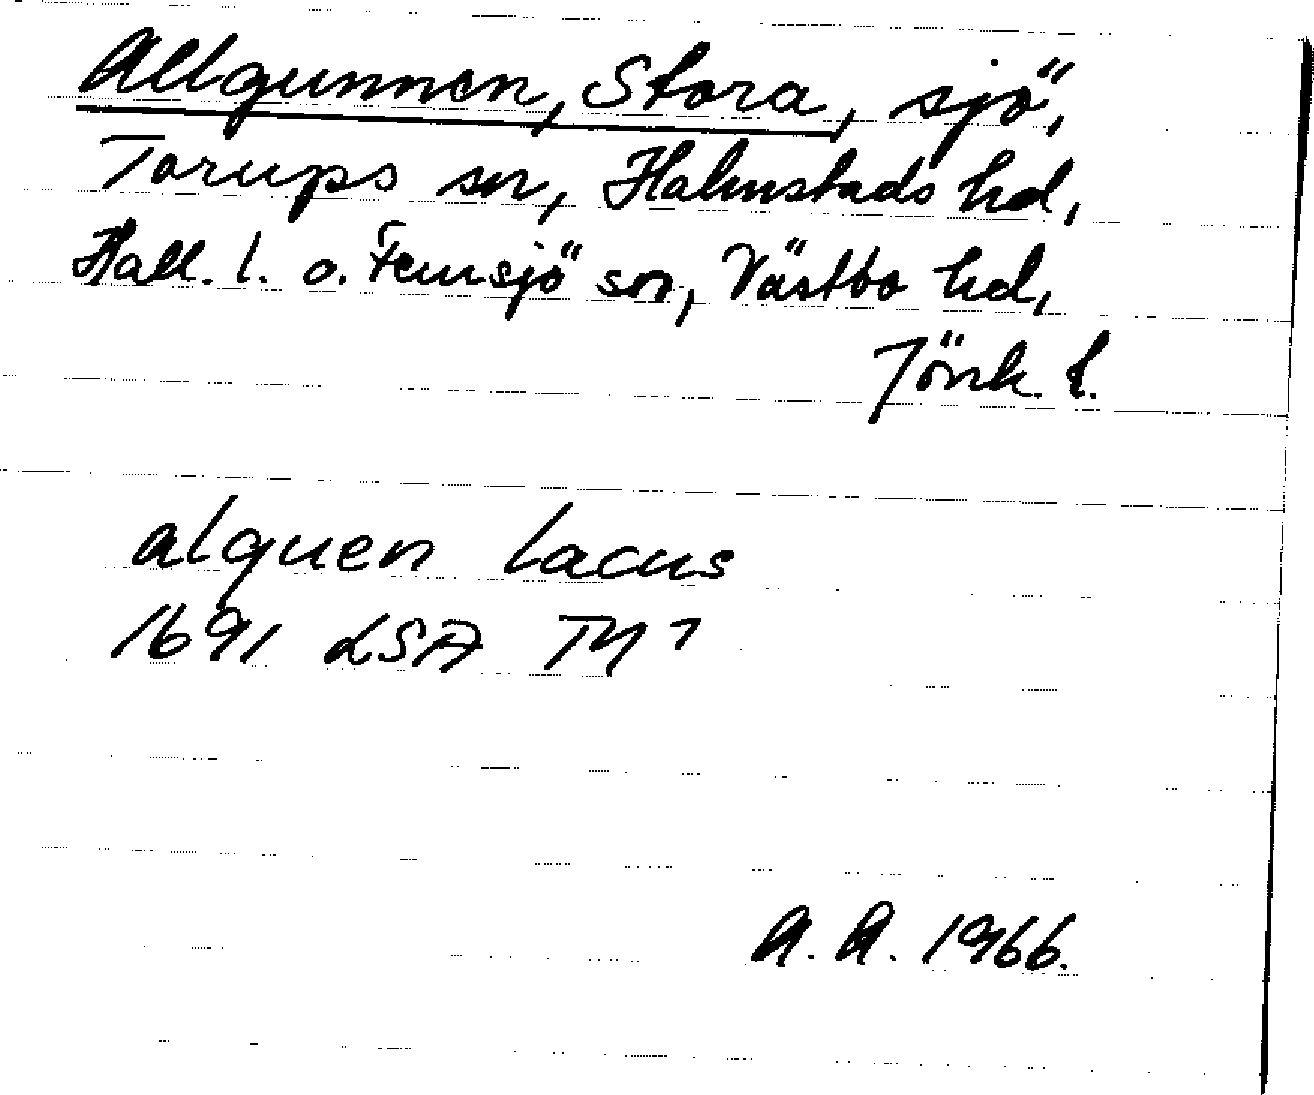 Allgunnen, Stora, sjö,
Torups sn, Halmstads hd,
Hall. l. o. Femsjö sn, Västbo hd,
Jönk. l.
alguen lacus
1691 LSA TY 7
A. A. 1966.